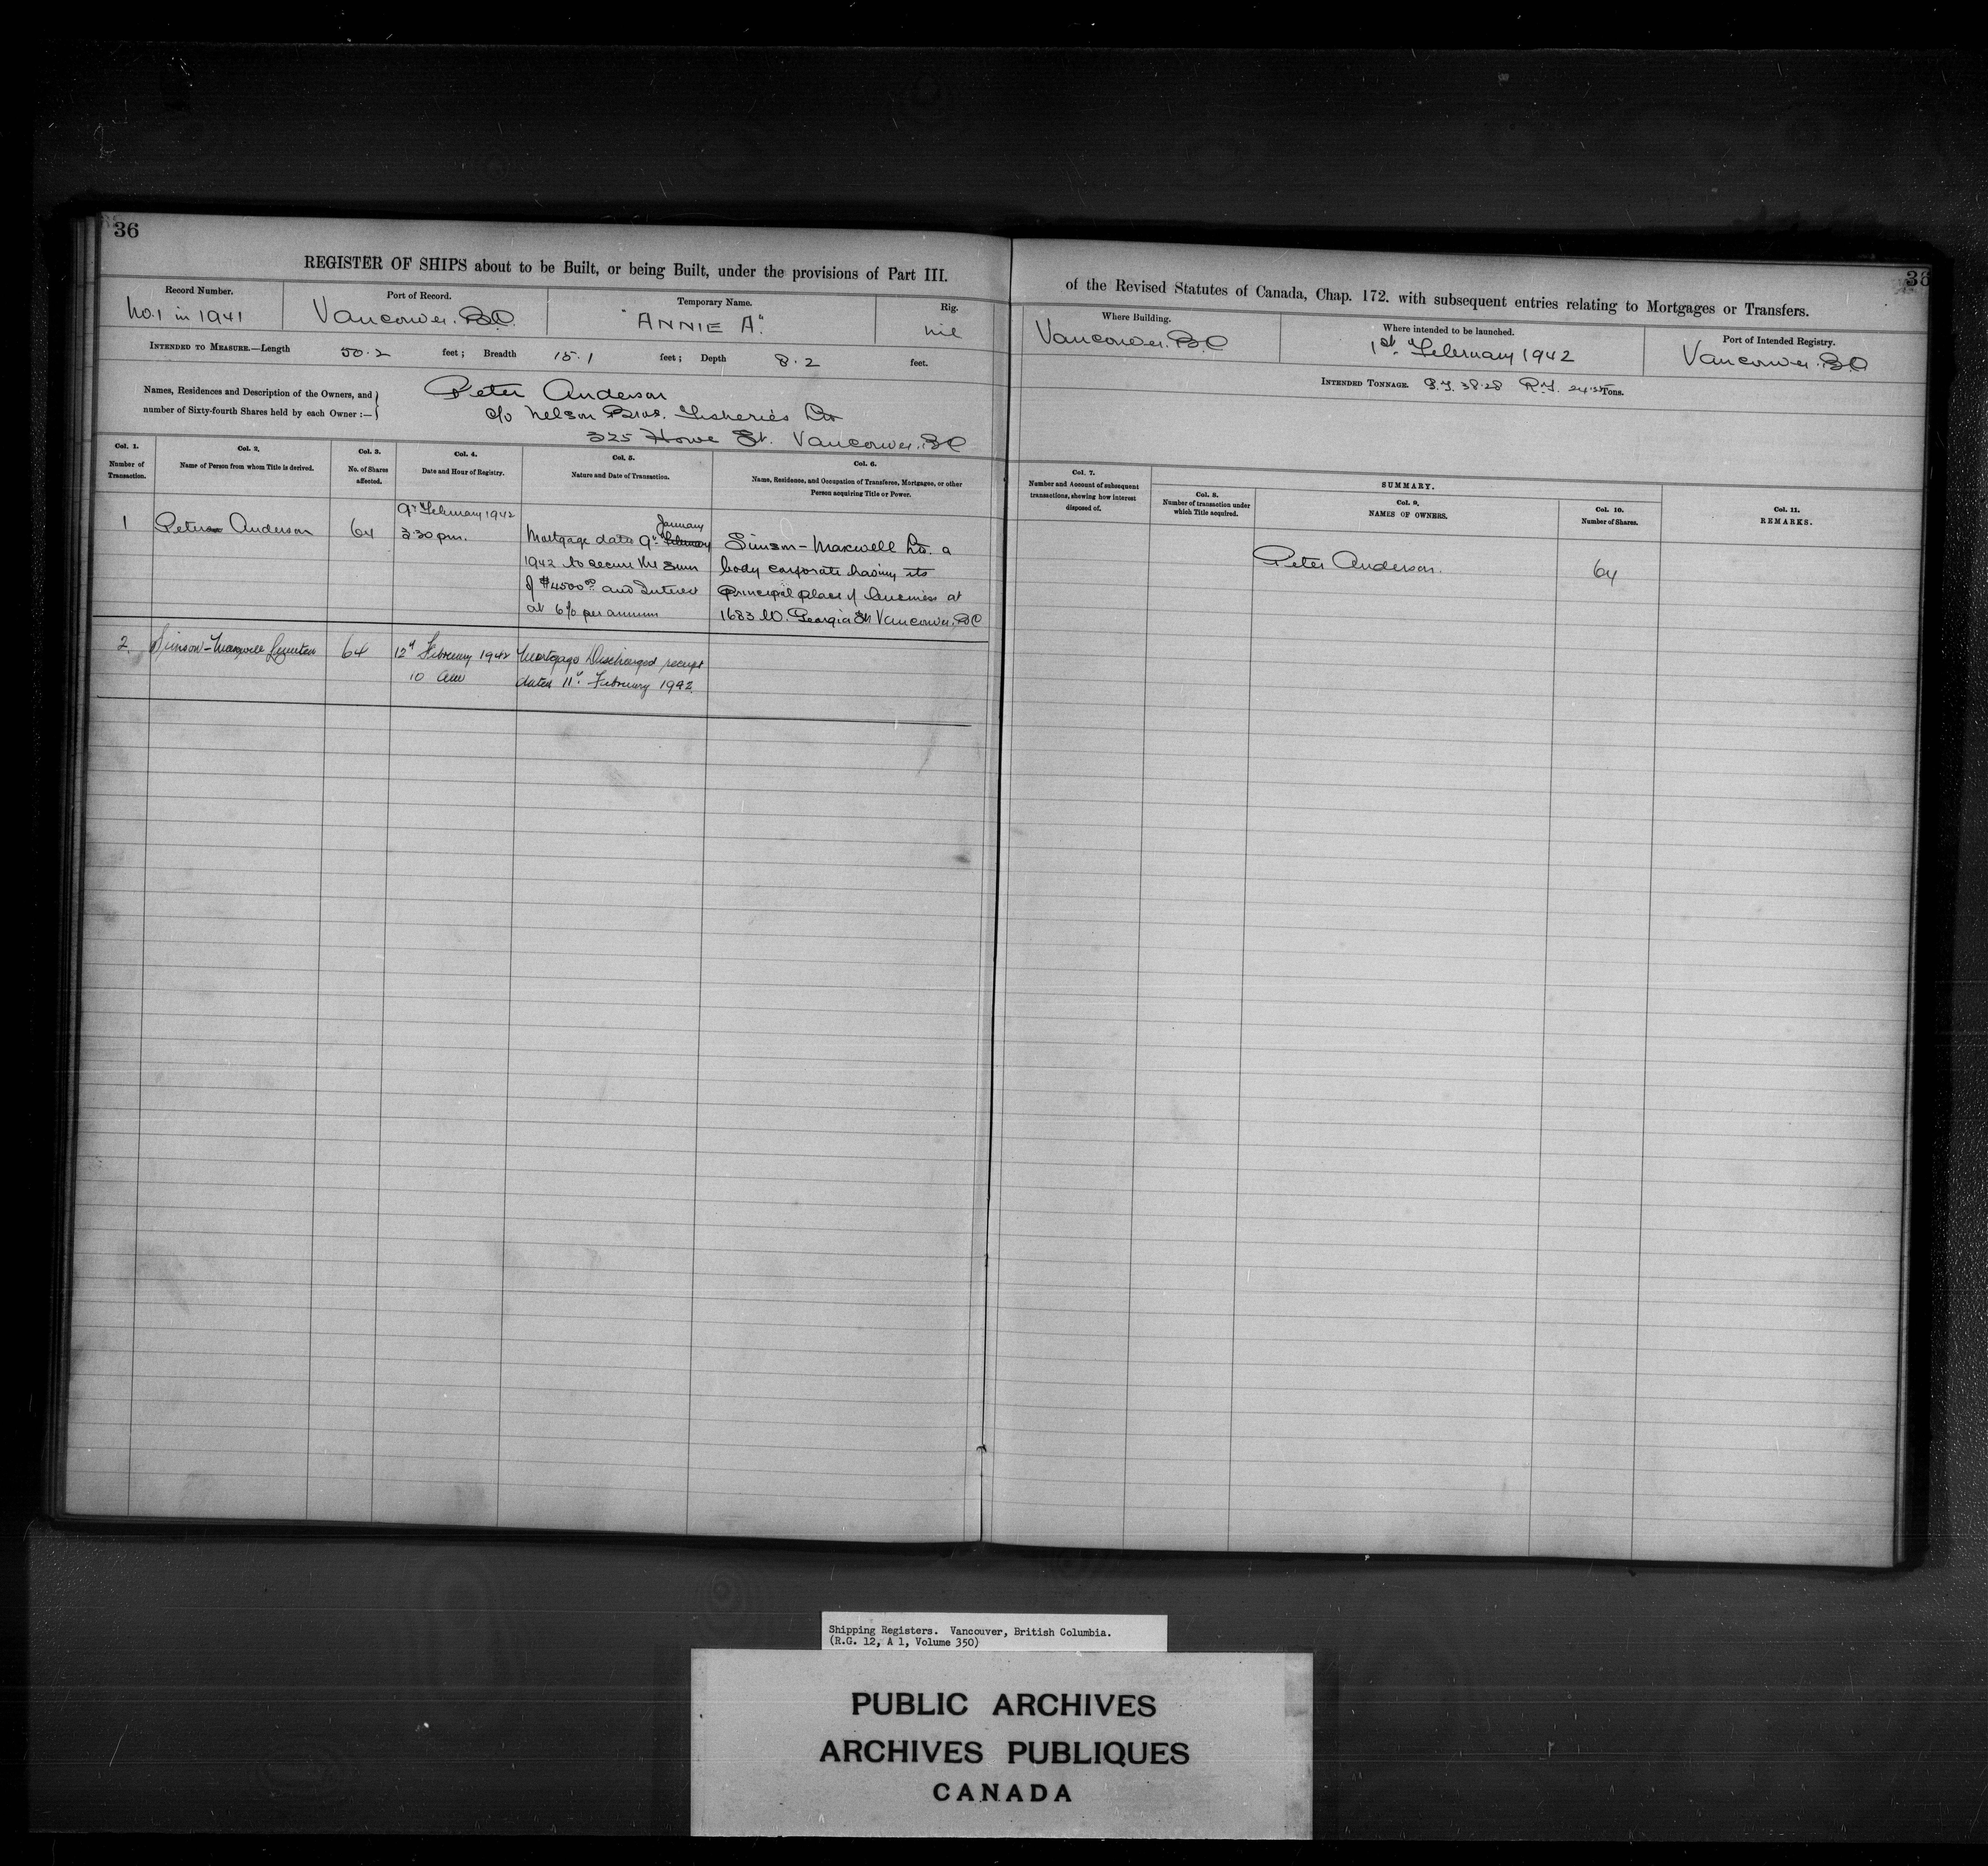 36
REGISTER OF SHIPS about to be Built, or being Built, under the provisions of Part III.
Record Number.
No. 1 in 1941
Port of Record.
Vancouver. B.C.
Temporary Name.
"ANNIE A."
Rig.
nil
INTENDED TO MEASURE.—Length 50.2 feet; Breadth 15.1 feet; Depth 8.2 feet.
Names, Residences and Description of the Owners, and
number of Sixty-fourth Shares held by each Owner:—
Peter Anderson
c/o Nelson Bros. Fisheries Ltd
325 Howe St. Vancouver. BC
Col. 1.
Number of
Transaction.
Col. 2.
Name of Person from whom Title is derived.
Col. 3.
No. of Shares
affected.
Col. 4.
Date and Hour of Registry.
Col. 5.
Nature and Date of Transaction.
Col. 6.
Name, Residence, and Occupation of Transferee, Mortgagee, or other
Person acquiring Title or Power.
1
Peter Anderson
64
9th February 1942
3:30 pm.
January
Mortgage date 9th February
1942 to secure the sum
of $4500.00 and Interest
at 6% per annum
Simson-Maxwell Ltd. a
body corporate having its
principal place of business at
1683 W. Georgia St Vancouver. BC
2.
Simson-Maxwell Limited
64
12th February 1942
10 am
Mortgage Discharged receipt
dated 11th February 1942.
36
of the Revised Statutes of Canada, Chap. 172. with subsequent entries relating to Mortgages or Transfers.
Where Building.
Vancouver. BC
Where intended to be launched.
1st February 1942
Port of Intended Registry.
Vancouver. BC
INTENDED TONNAGE. G.T. 38.28 R.T. Tons.
Col. 7.
Number and Account of subsequent
transactions, showing how interest
disposed of.
SUMMARY.
Col. 8.
Number of transaction under
which Title acquired.
Col. 9.
NAMES OF OWNERS.
Col. 10.
Number of Shares.
Col. 11.
REMARKS.
Peter Anderson.
64
Shipping Registers. Vancouver, British Columbia.
(R.G. 12, A 1, Volume 350)
PUBLIC ARCHIVES
ARCHIVES PUBLIQUES
CANADA